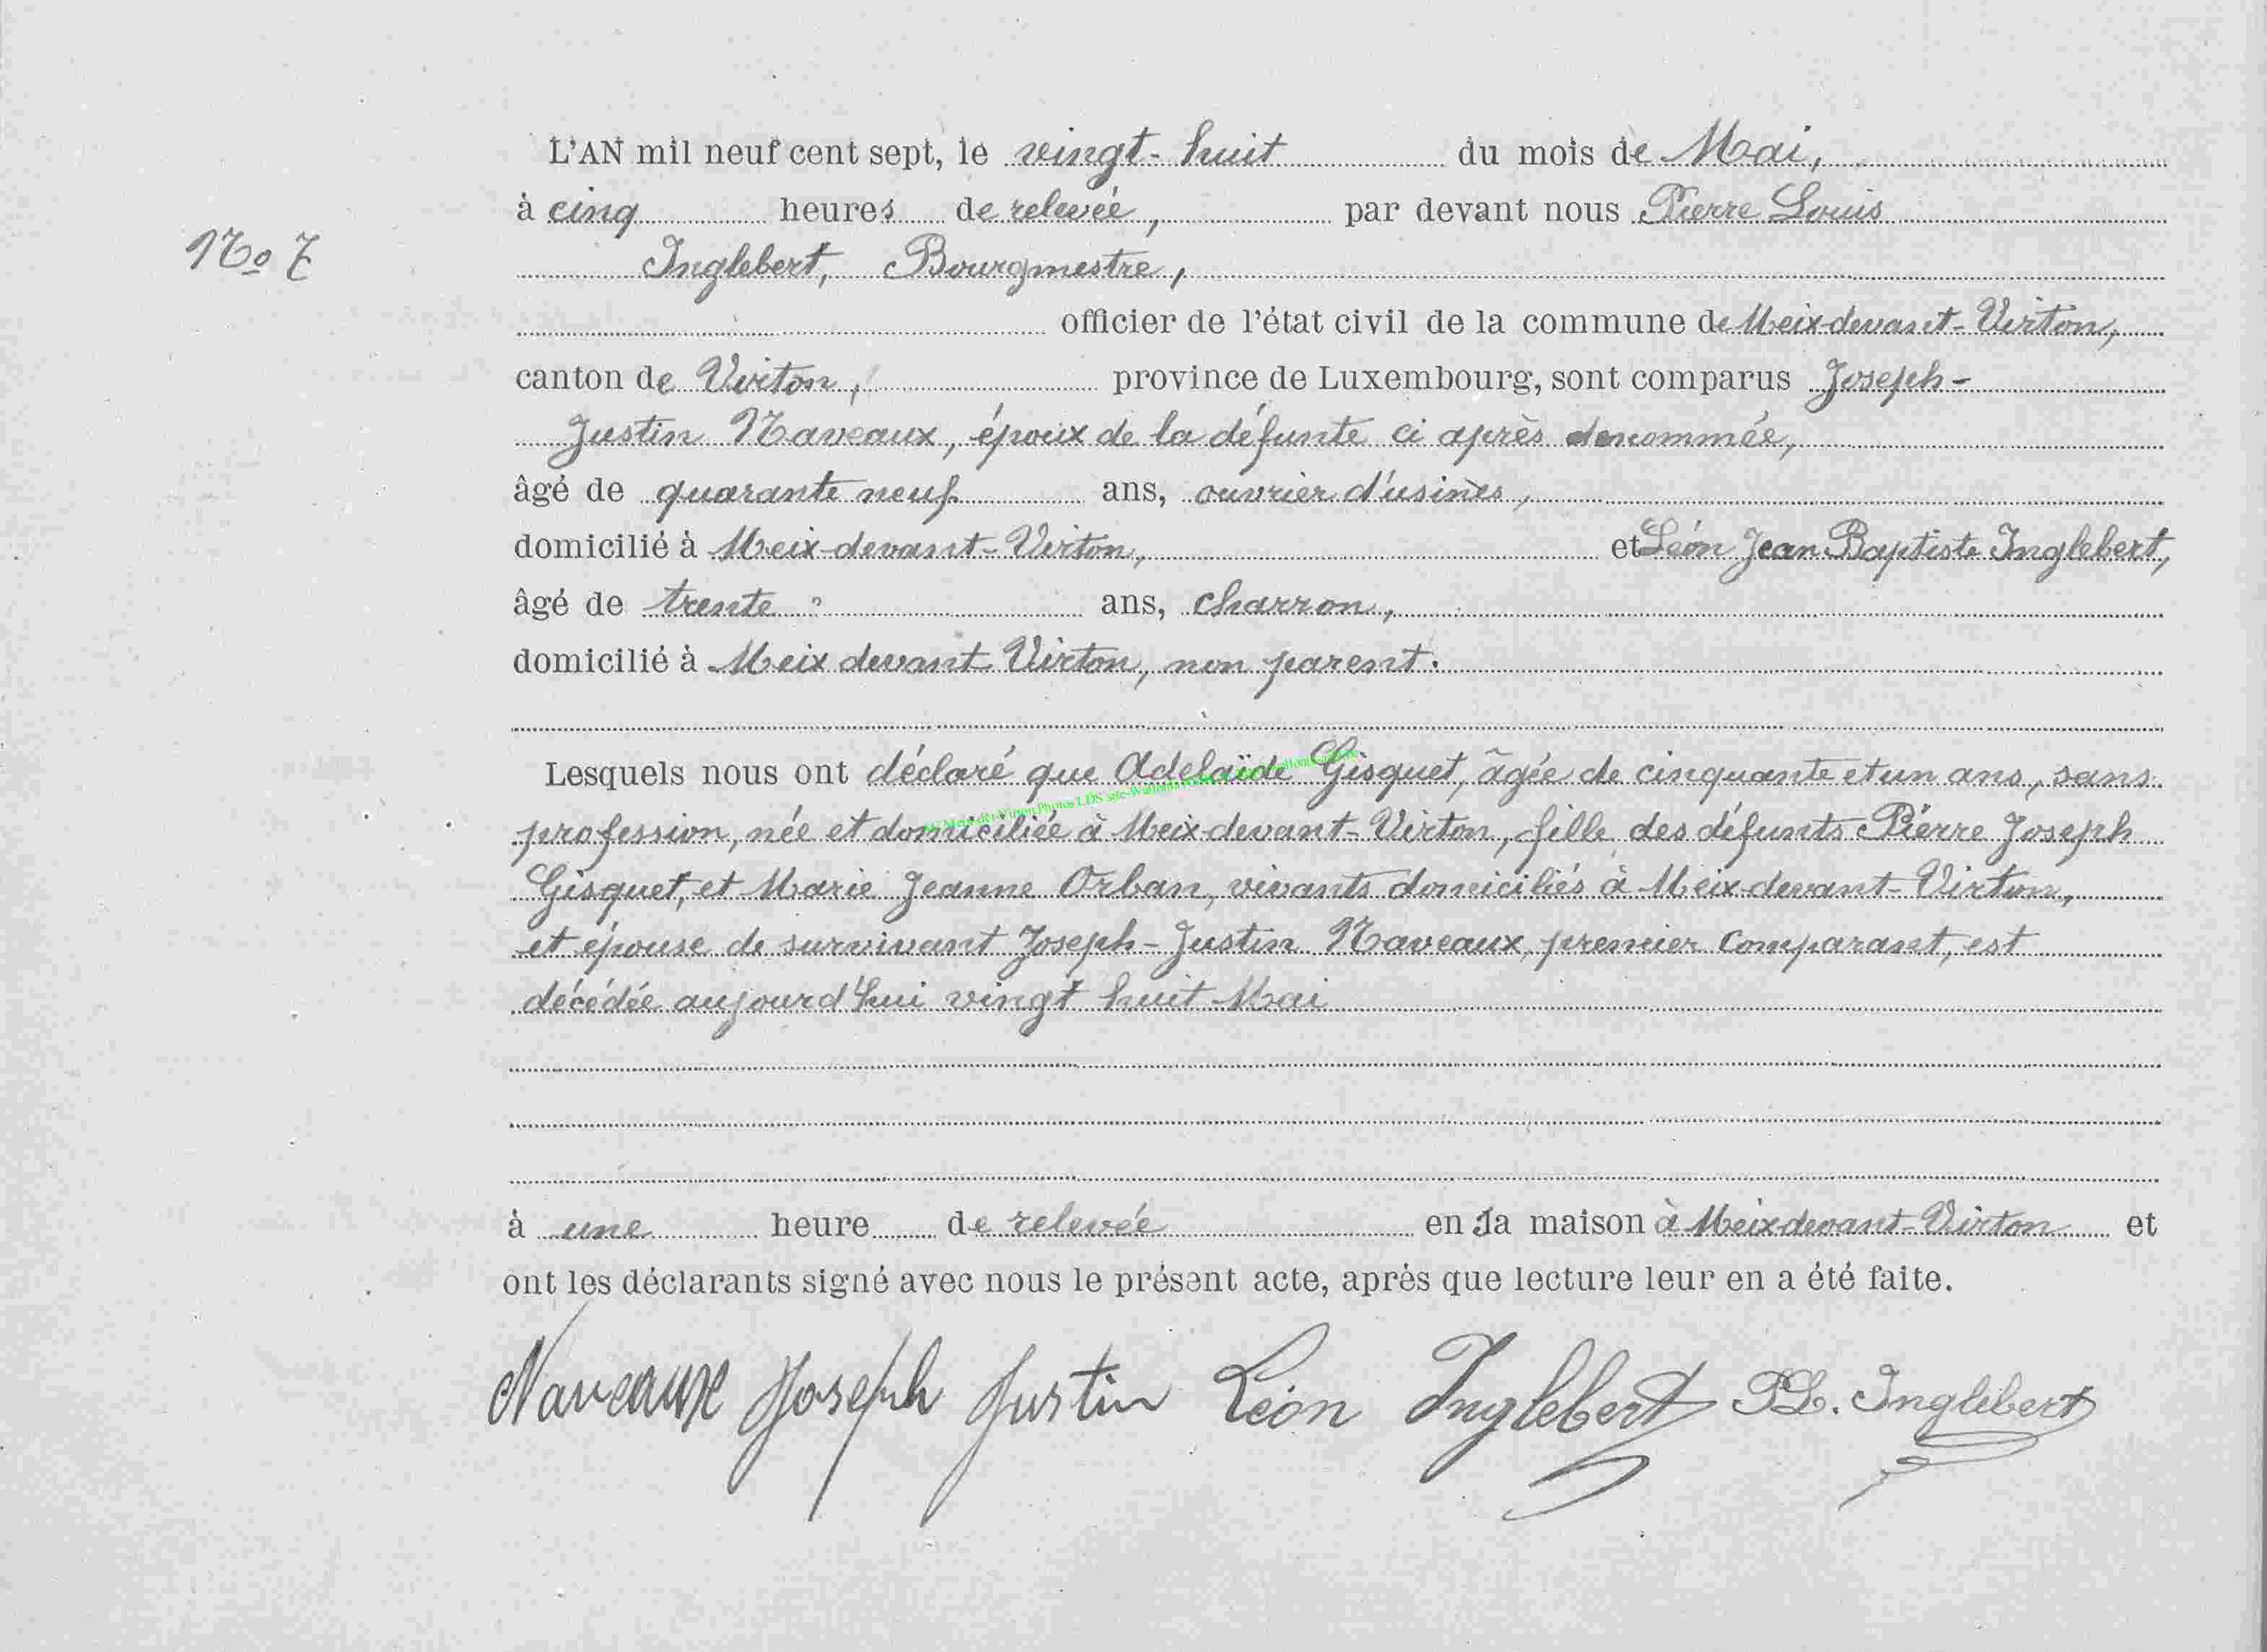 L'AN mil neuf cent sept, le vingt-huit du mois de Mai,
à cinq heures de relevée, par devant nous Pierre Louis
No 7
Inglebert, Bourgmestre,
officier de l'état civil de la commune de Meix-devant-Virton,
canton de Virton, province de Luxembourg, sont comparus Joseph-
Justin Naveaux, époux de la défunte ci après denommée,
âgé de quarante neuf ans, ouvrier d'usines,
domicilié à Meix-devant-Virton, et Léon Jean Baptiste Inglebert,
âgé de trente ans, charron,
domicilié à Meix devant Virton, non parent.
Lesquels nous ont déclaré que Adelaïde Gisquet, âgée de cinquante et un ans, sans
profession, née et domiciliée à Meix-devant-Virton, fille des défunts Pierre Joseph
Gisquet, et Marie Jeanne Orban, vivants domiciliés à Meix-devant-Virton,
et épouse de survivant Joseph-Justin Naveaux, premier comparant, est
décédée aujourd'hui vingt huit Mai
à une heure de relevée en la maison à Meix-devant-Virton et
ont les déclarants signé avec nous le présent acte, après que lecture leur en a été faite.
Naveaux Joseph Justin Léon Inglebert PL. Inglebert